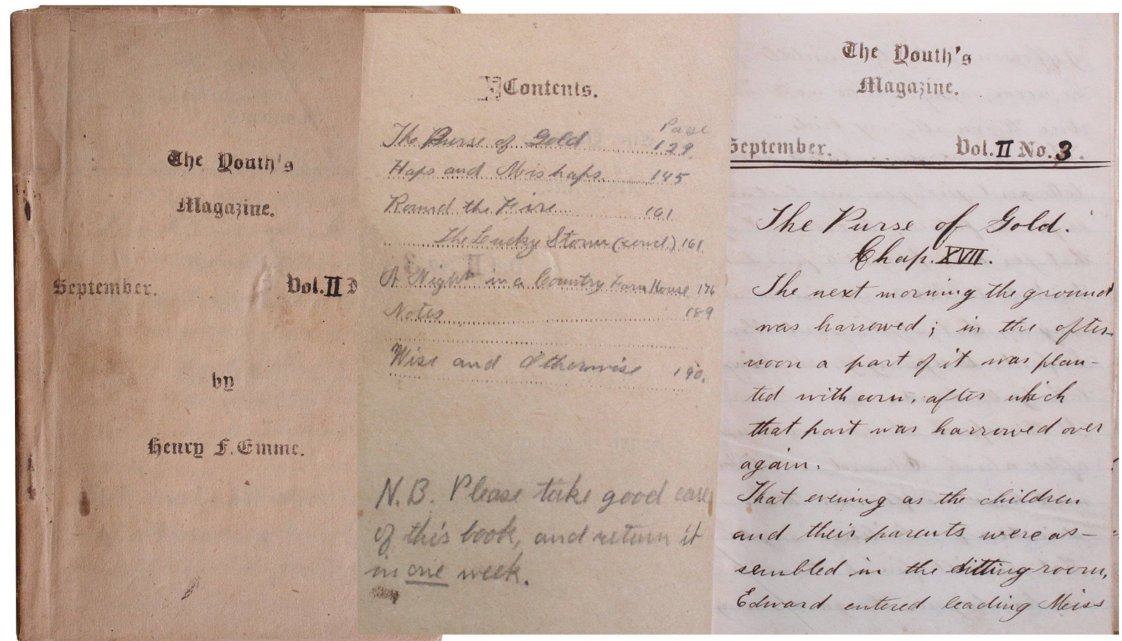 The Youth's
Magazine.
September. Vol. II
by
Henry F. Emme.
Contents.
Page
The Purse of Gold 129
Haps and Mishaps 145
Round the Fire 161
The Lucky Storm (concl) 161
A Night in a Country Farm House 176
Notes 189
Wise and Otherwise 190.
N.B. Please take good care
of this book, and return it
in one week.
The Youth's
Magazine.
September. Vol. II No. 3.
The Purse of Gold.
Chap. XVII.
The next morning the ground
was harrowed; in the after-
noon a part of it was plan-
ted with corn, after which
that part was harrowed over
again.
That evening as the children
and their parents were as-
sembled in the sitting room,
Edward entered leading Miss